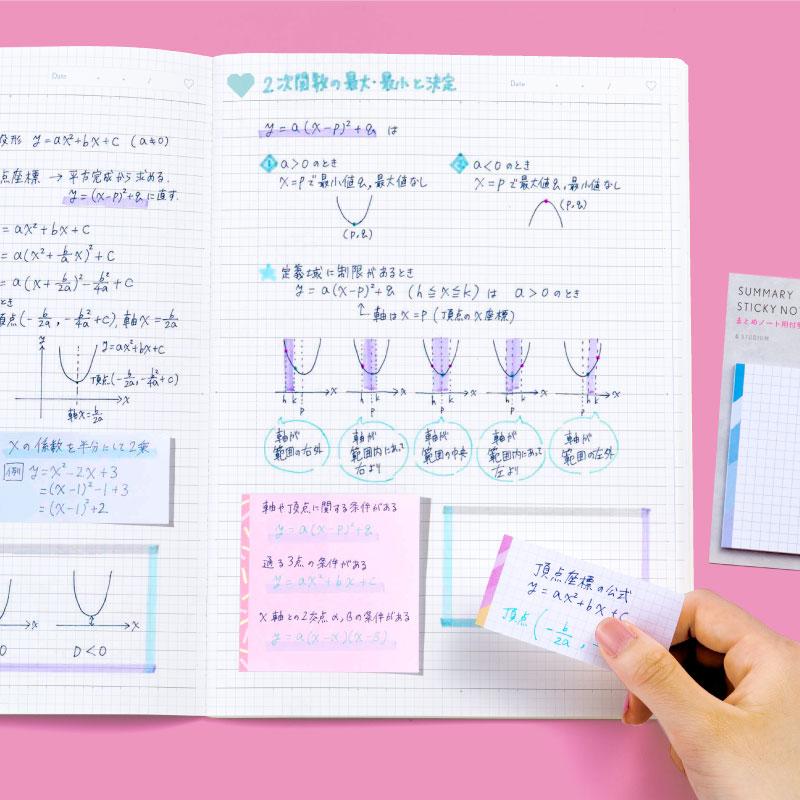 Date
変形 y=ax²+bx+c (a≠0)
点座標 → 平方完成から求める.
y=(x-p)²+q に直す.
= ax²+bx+c
= a(x²+b/a x)²+c
= a(x+b/2a)²-b²/4a+c
とき
頂点(-b/2a, -b²/4a+c), 軸x=b/2a
y
y=ax²+bx+c
頂点(-b/2a, -b²/4a+c)
x
軸x=b/2a
xの係数を半分にして2乗
例 y=x²-2x+3
=(x-1)²-1+3
=(x-1)²+2
x x
0 D<0
2次関数の最大・最小と決定
Date
y=a(x-p)²+q は
1 a>0のとき
x=pで最小値q, 最大値なし
(p,q)
2 a<0のとき
x=pで最大値q, 最小値なし
(p,q)
定義域に制限があるとき
y=a(x-p)²+q (h≦x≦k) は a>0のとき
軸はx=p (頂点のx座標)
h k p x
h p k x
h p k x
h p k x
p h k x
軸が
範囲の右外
軸が
範囲内にあって
右より
軸が
範囲の中央
軸が
範囲内にあって
左より
軸が
範囲の左外
軸や頂点に関する条件がある
y=a(x-p)²+q
通る3点の条件がある
y=ax²+bx+c
x軸との2交点α,βの条件がある
y=a(x-α)(x-β)
頂点座標の公式
y=ax²+bx+c
頂点(-b/2a, -
SUMMARY
STICKY NO
まとめノート用付
& STUDIUM